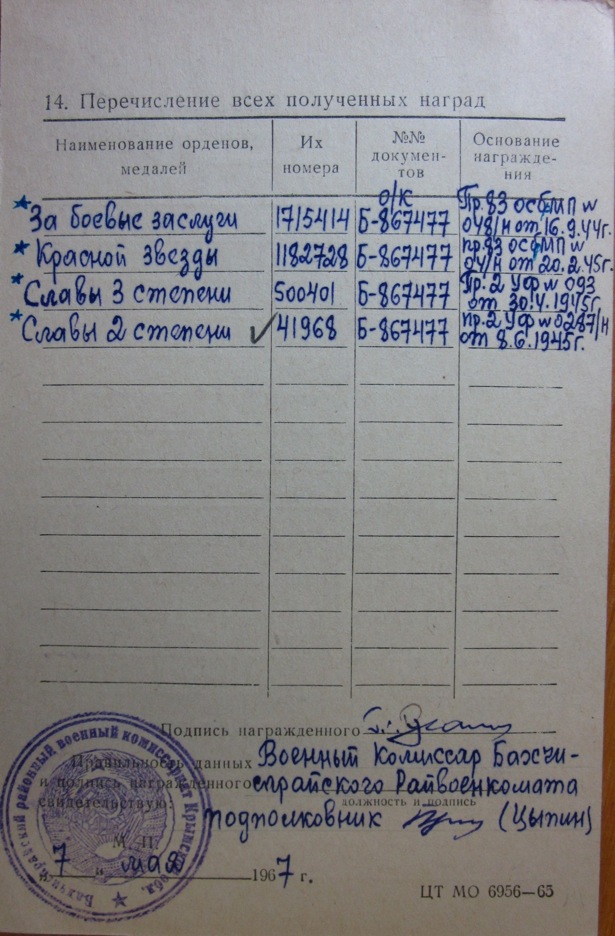 14. Перечисление всех полученных наград
Наименование орденов, медалей
Их номера
№№ докумен-тов
Основание награжде-ния
о/к
За боевые заслуги 1715414 Б-867477 Пр. 83 осбМП № 048/н от 16.9.44г.
Красной Звезды 1182728 Б-867477 пр. 83 осбМП № 04/н от 20.2.45г.
Славы 3 степени 500401 Б-867477 Пр. 2 УФ № 093 от 30.4.1945г.
Славы 2 степени 41968 Б-867477 пр. 2 УФ № 0287/н от 8.6.1945г.
Подпись награжденного
Правильность данных Военный Комиссар Бахчи-
и подпись награжденного сарайского Райвоенкомата
свидетельствую: должность и подпись
подполковник (Цыпин)
М. П.
„7 " мая 1967 г.
ЦТ МО 6956—65
Бахчисарайский районный военный комиссариат Крымской обл.